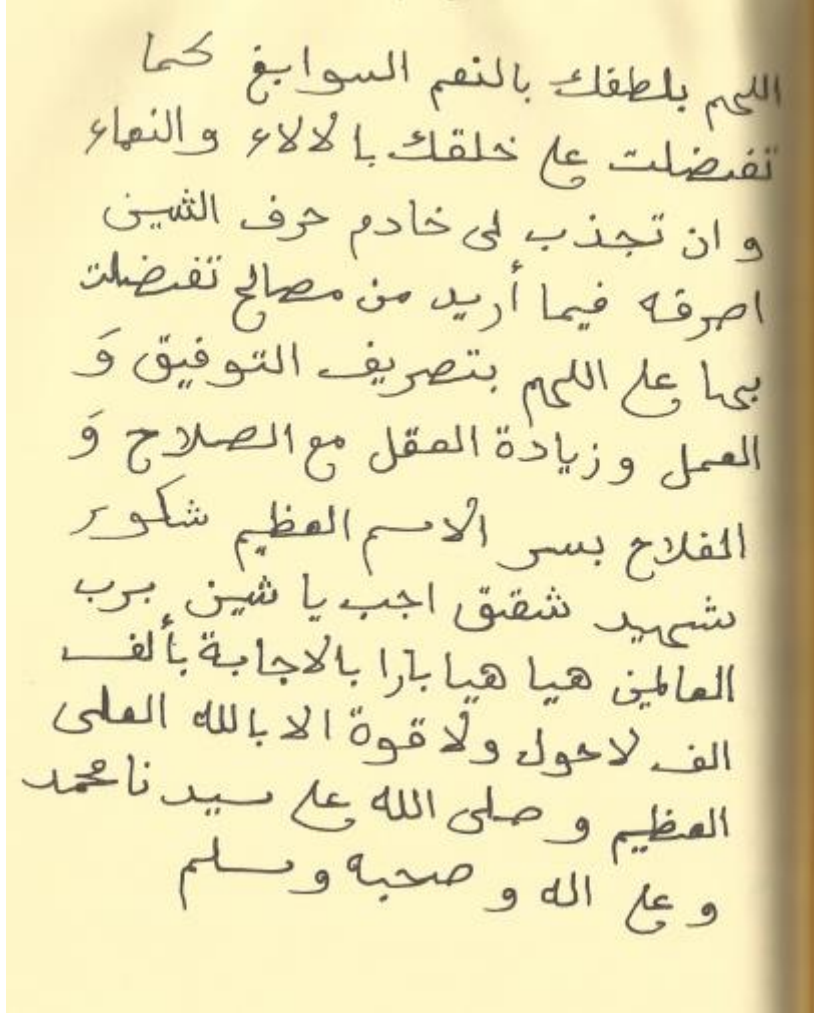 اللهم بلطفك بالنعم السوابغ كما
تفضلت على خلقك بالالاء والنعماء
وان تجذب لى خادم حرف الشين
اصرفه فيما أريد من مصالح تفضلت
بها على اللهم بتصريف التوفيق وَ
العمل وزيادة العقل مع الصلاح وَ
الفلاح بسر الاسم العظيم شكور
شهيد شقق اجب يا شين برب
العالمين هيا هيا بارا بالاجابة بألف
الف لاحول ولا قوة الا بالله العلى
العظيم وصلى الله على سيدنا محمد
وعلى اله وصحبه وسلم